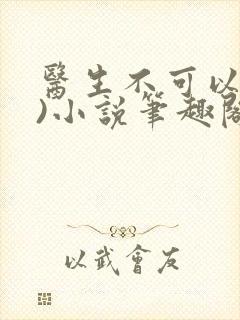 醫生不可以
)小說筆趣閣
以武會友